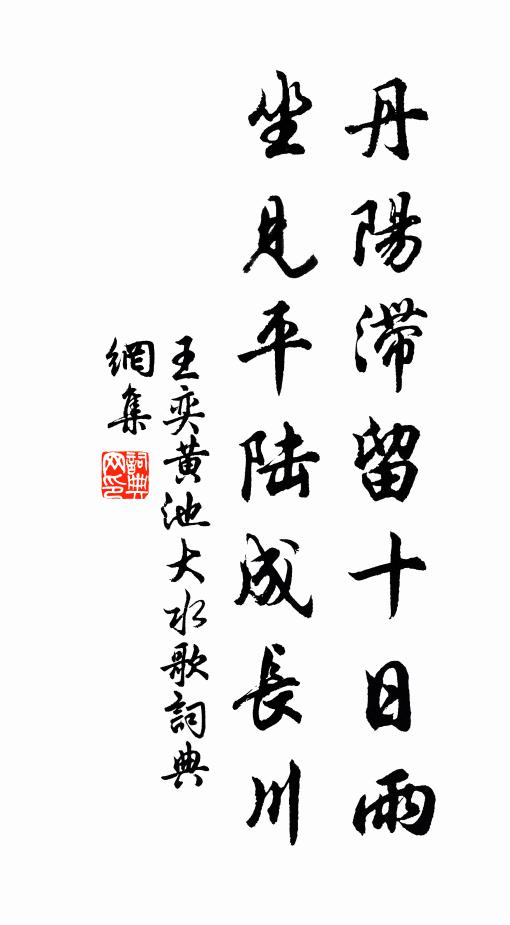 丹陽滯留十日雨
坐見平陸成長川
王奕黃池大水歌詞典
網集
詞典
网印